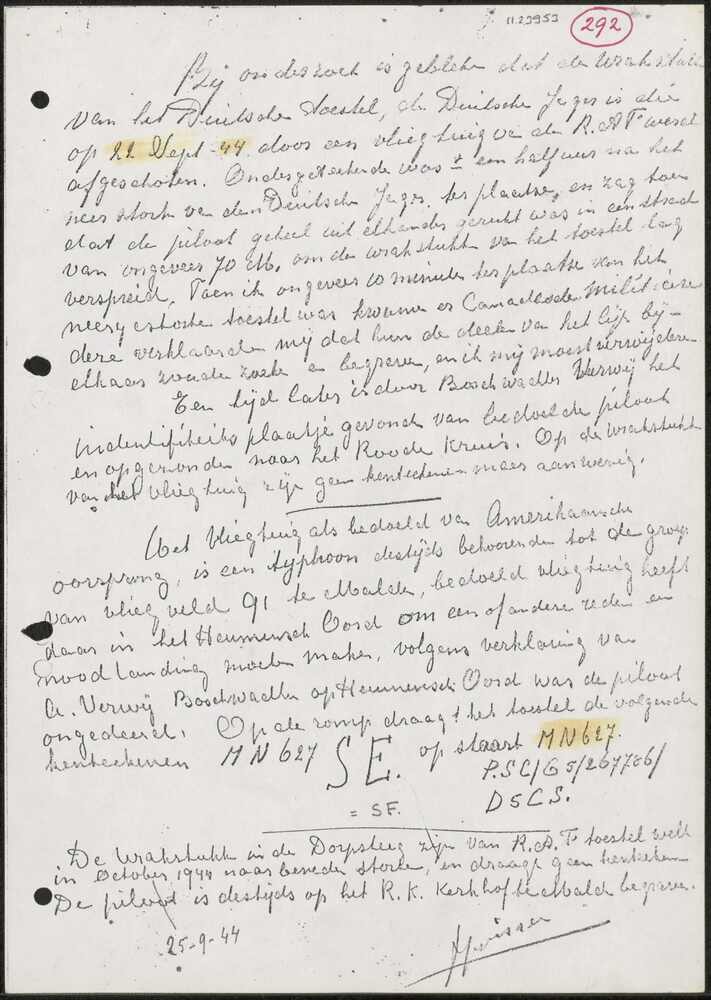 1123953
292
Bij onderzoek is gebleken dat de wrakstukken
van het Duitsche toestel, de Duitsche Jager is die
op 22 Sept - 44 door een vliegtuig v. de R.A.F. werd
afgeschoten. Ondergeteekende was ± een half uur na het
neerstorten v.e. den Duitsche Jager, ter plaatse, en zag toen
dat de piloot geheel uit elkander gerukt was in een straal
van ongeveer 70 M. om de wrakstukken van het toestel lag
verspreid. Toen ik ongeveer 10 minuten ter plaatse van het
neergestorte toestel was kwamen er Canadeesche militairen
deze verklaarden mij dat hun de deelen van het lijk bij-
elkaar zouden zoeken en begraven, en ik mij moest verwijderen
Een tijd later is door Boschwachter Verwij het
indentifiteits plaatje gevonden van bedoelde piloot
en opgezonden naar het Roode Kruis. Op de wrakstukken
van het vliegtuig zijn geen kenteekenen meer aanwezig.
Het vliegtuig als bedoeld van Amerikaansche
oorsprong, is een typhoon destijds behoorende tot de groep
van vliegveld 91 te Malden, bedoeld vliegtuig heeft
daar in het Heumensch Oord om een of andere reden een
noodlanding moeten maken, volgens verklaring van
A. Verwij Boschwachter op Heumensch Oord was de piloot
ongedeerd. Op de romp draagt het toestel de volgende
kenteekenen MN 627 SE. op staart MN 627.
P.SC/G5/267706/
D5CS.
= SF.
De wrakstukken in de Dorpsteeg zijn van R.A.F. toestel welk
in October 1944 naar beneden stortte, en draagt geen kenteeken
De piloot is destijds op het R.K. Kerkhof te Malden begraven.
25-9-44